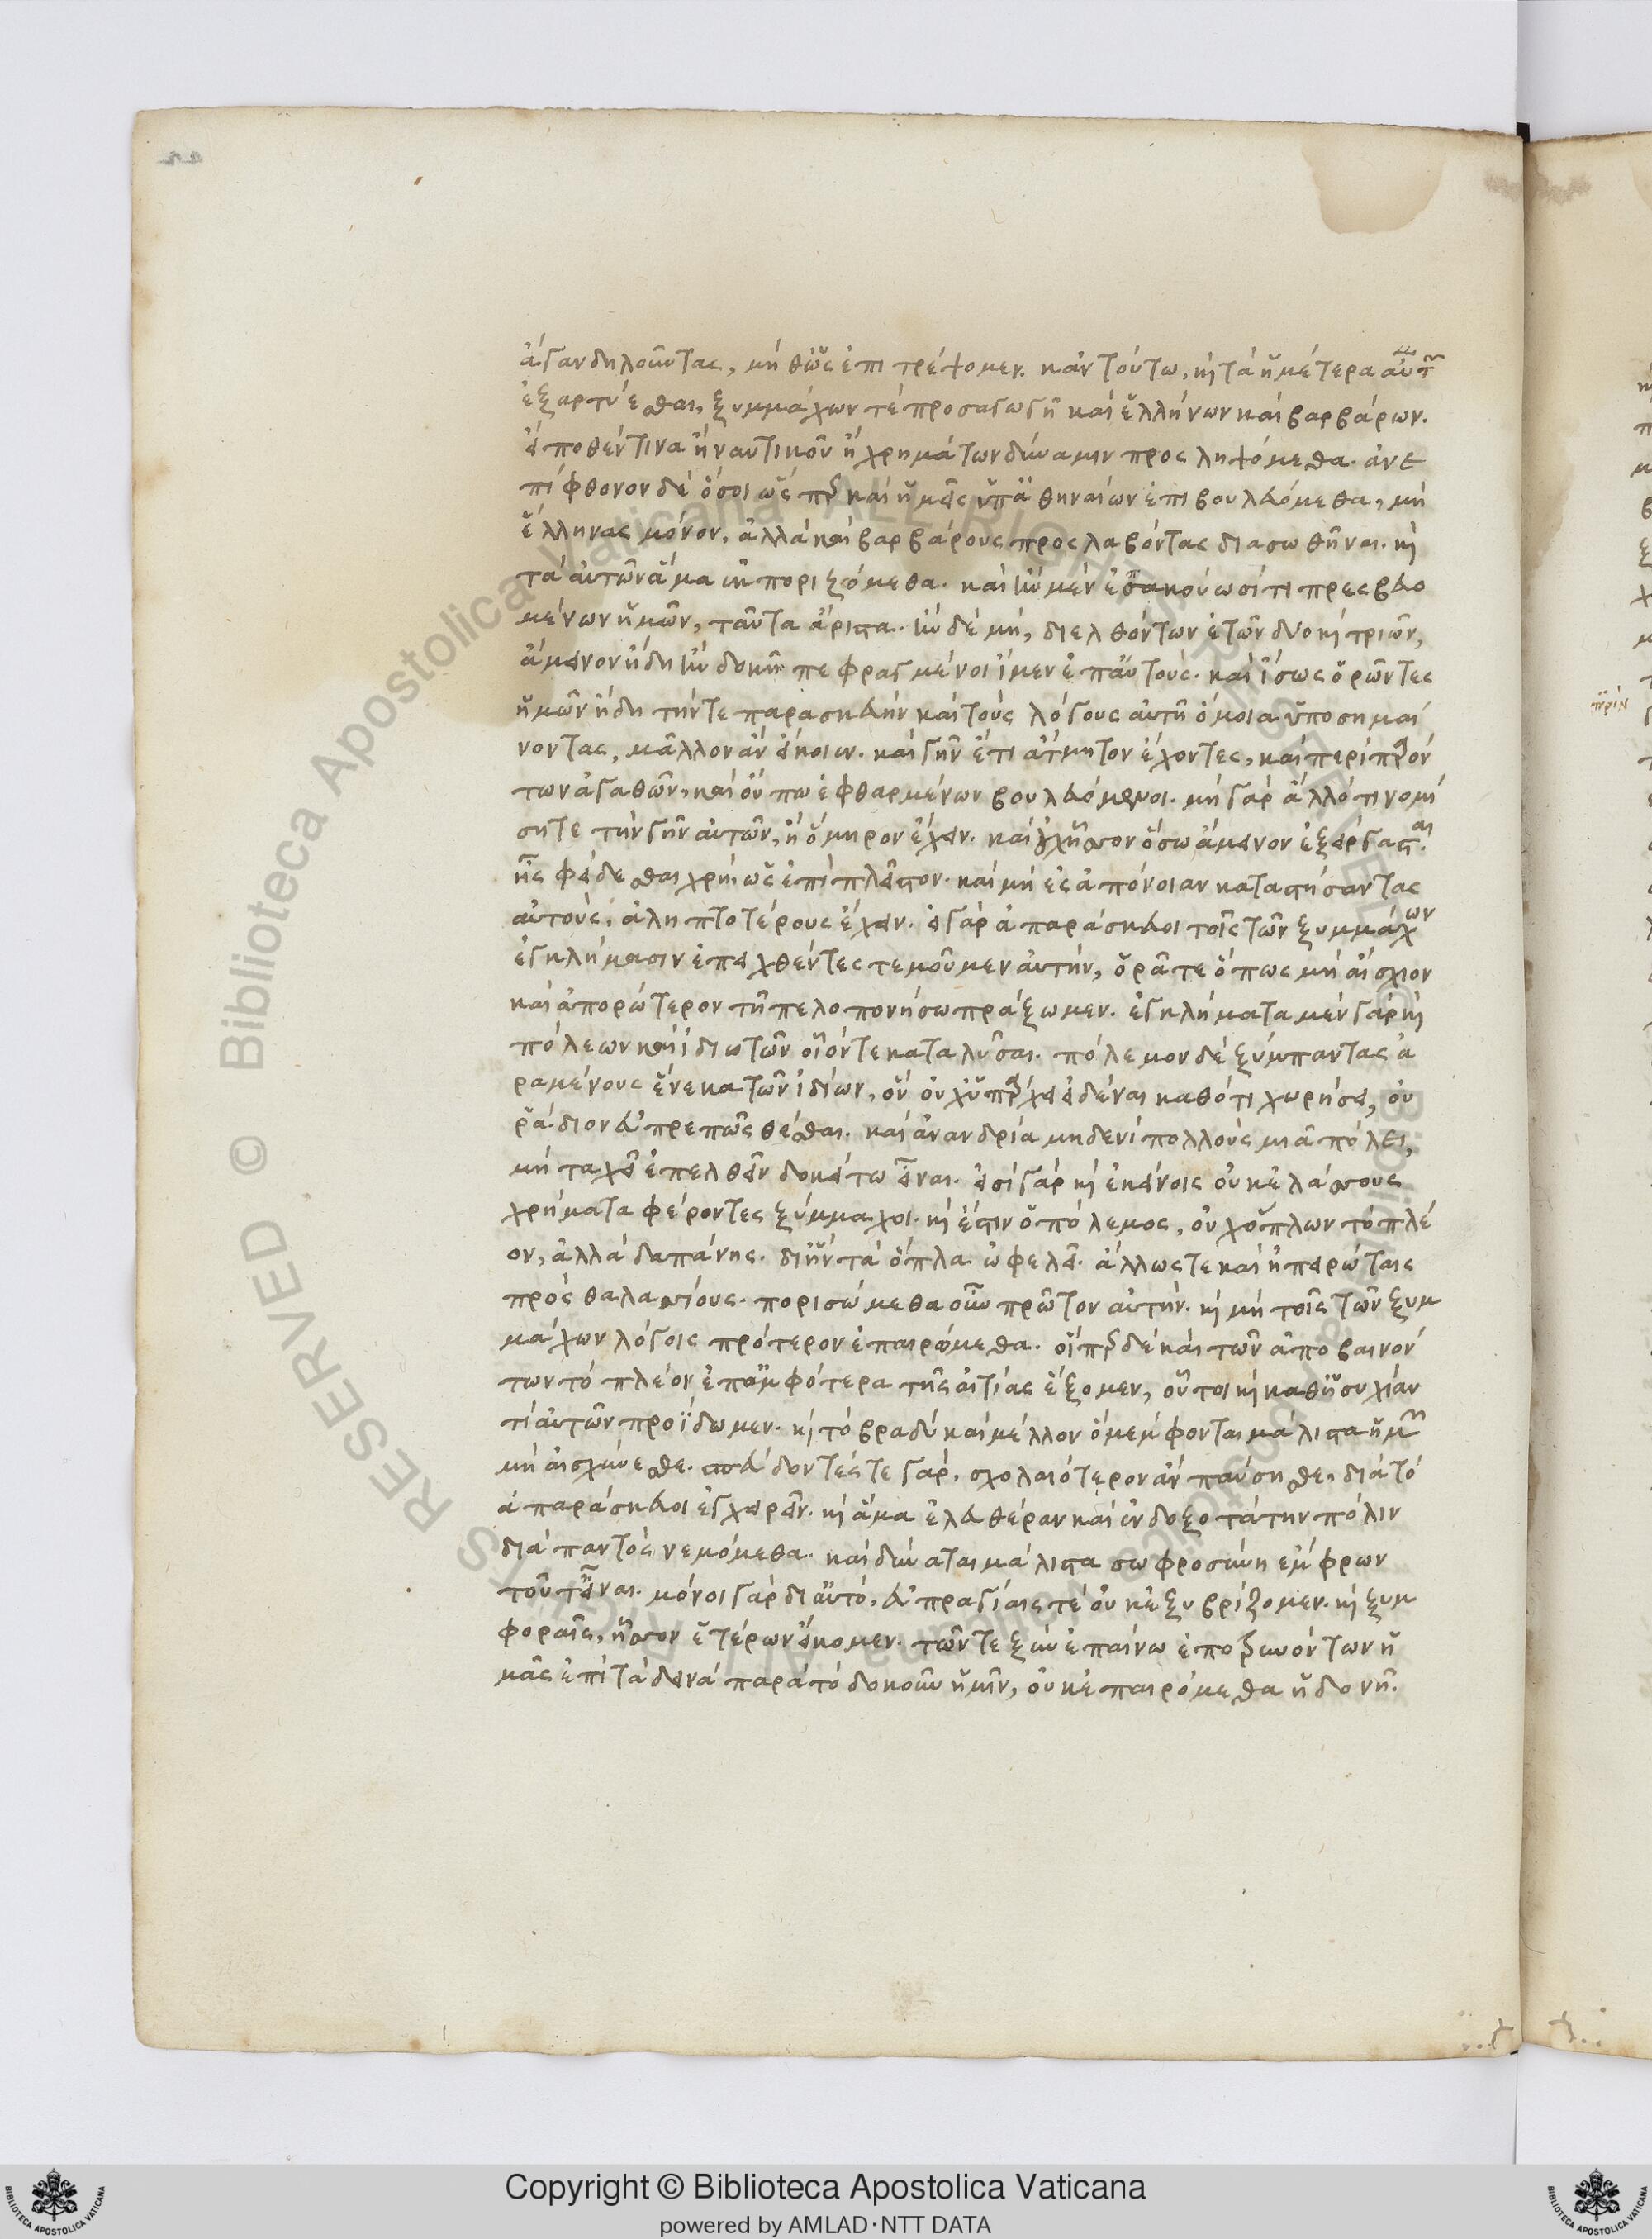 ἄγαν δηλοῦντας, μήθ ὡς ἐπιτρέψομεν. κἀν τούτω, καὶ τὰ ἡμέτερα αὐτῶν
ἐξαρτύεσθαι, ξυμμάχων τὲ προσαγωγῆ καὶ ἑλλήνων καὶ βαρβάρων.
εἴ ποθέν τινα ἢ ναυτικοῦ ἢ χρημάτων δύναμιν προσληψόμεθα. ἀνε
πίφθονον δὲ ὅσοι ὥσπερ καὶ ἡμεῖς ὑπ ἀθηναίων ἐπιβουλευόμεθα, μὴ
ἕλληνας μόνον, ἀλλὰ καὶ βαρβάρους προσλαβόντας διασωθῆναι. καὶ
τὰ αὐτῶν ἅμα ἐκποριζόμεθα. καὶ ἢν μὲν ἐσακούωσί τι πρεσβευο
μένων ἡμῶν, ταῦτα ἄριστα. ἢν δὲ μὴ, διελθόντων ἐτῶν δύο καὶ τριῶν,
ἄμεινον ἤδη ἢν δοκῆ πεφραγμένοι ἴμεν ἐπ αὐτούς. καὶ ἴσως ὁρῶντες
ἡμῶν ἤδη τήν τε παρασκευὴν καὶ τοὺς λόγους αὐτῆ ὁμοῖα ὑποσημαί
νοντας, μᾶλλον ἂν εἴκοιεν. καὶ γῆν ἔτι ἄτμητον ἔχοντες, καὶ περὶ παρόν
των ἀγαθῶν, καὶ οὔπω ἐφθαρμένων βουλευόμενοι. μὴ γὰρ ἄλλό τι νομί
σητε τὴν γῆν αὐτῶν, ἢ ὅμηρον ἔχειν. καὶ οὐχ ἧσσον ὅσω ἄμεινον ἐξείργασται.
ἧς φείδεσθαι χρὴ ὡς ἐπὶ πλεῖστον. καὶ μὴ ἐς ἀπόνοιαν καταστήσαντας
αὐτοὺς, ἀληπτοτέρους ἔχειν. εἰ γὰρ ἀπαράσκευοι τοῖς τῶν ξυμμάχων
ἐγκλήμασιν ἐπειχθέντες τεμοῦμεν αὐτὴν, ὁρᾶτε ὅπως μὴ αἴσχιον
καὶ ἀπορώτερον τῆ πελοποννήσω πράξωμεν. ἐγκλήματα μὲν γὰρ καὶ
πόλεων καὶ ἰδιωτῶν οἷόν τε καταλῦσαι. πόλεμον δὲ ξύμπαντας ἀ
ραμένους ἕνεκα τῶν ἰδίων, ὃν οὐχ ὑπάρχει εἰδέναι καθότι χωρήσει, οὐ
ῥάδιον εὐπρεπῶς θέσθαι. καὶ ἀνανδρία μηδενὶ πολλοὺς μιᾶ πόλει,
μὴ ταχεῖ ἐπελθεῖν δοκείτω εἶναι. εἰσὶ γὰρ καὶ ἐκείνοις οὐκ ἐλάσσους
χρήματα φέροντες ξύμμαχοι. καὶ ἔστιν ὁ πόλεμος, οὐχ ὅπλων τὸ πλέ
ον, ἀλλὰ δαπάνης. δι ἣν τὰ ὅπλα ὠφελεῖ. ἄλλως τε καὶ ἠπειρώταις
πρὸς θαλασσίους. πορισώμεθα οὖν πρῶτον αὐτήν. καὶ μὴ τοῖς τῶν ξυμ
μάχων λόγοις πρότερον ἐπαιρώμεθα. οἵπερ δὲ καὶ τῶν ἀποβαινόν
των τὸ πλέον ἐπ ἀμφότερα τῆς αἰτίας ἕξομεν, οὗτοι καὶ καθ ἡσυχίαν
τὶ αὐτῶν προΐδωμεν. καὶ τὸ βραδὺ καὶ μέλλον ὃ μέμφονται μάλιστα ἡμῶν
μὴ αἰσχύνεσθε. σπεύδοντές τε γὰρ, σχολαιότερον ἂν παύσησθε, διὰ τὸ
ἀπαράσκευοι ἐγχειρεῖν. καὶ ἅμα ἐλευθέραν καὶ ἐνδοξοτάτην πόλιν
διὰ παντὸς νεμόμεθα. καὶ δύναται μάλιστα σωφροσύνη ἔμφρων
τοῦτ εἶναι. μόνοι γὰρ δι αὐτὸ, εὐπραγίαις τὲ οὐκ ἐξυβρίζομεν. καὶ ξυμ
φοραῖς, ἧσσον ἑτέρων εἴκομεν. τῶν τε ξὺν ἐπαίνω ἐποτρυνόντων ἡ
μᾶς ἐπὶ τὰ δεινὰ παρὰ τὸ δοκοῦν ἡμῖν, οὐκ ἐπαιρόμεσθα ἡδονῆ.
Copyright © Biblioteca Apostolica Vaticana
powered by AMLAD·NTT DATA